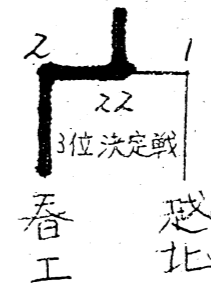 2
1
22
3位決定戦
春工
越北